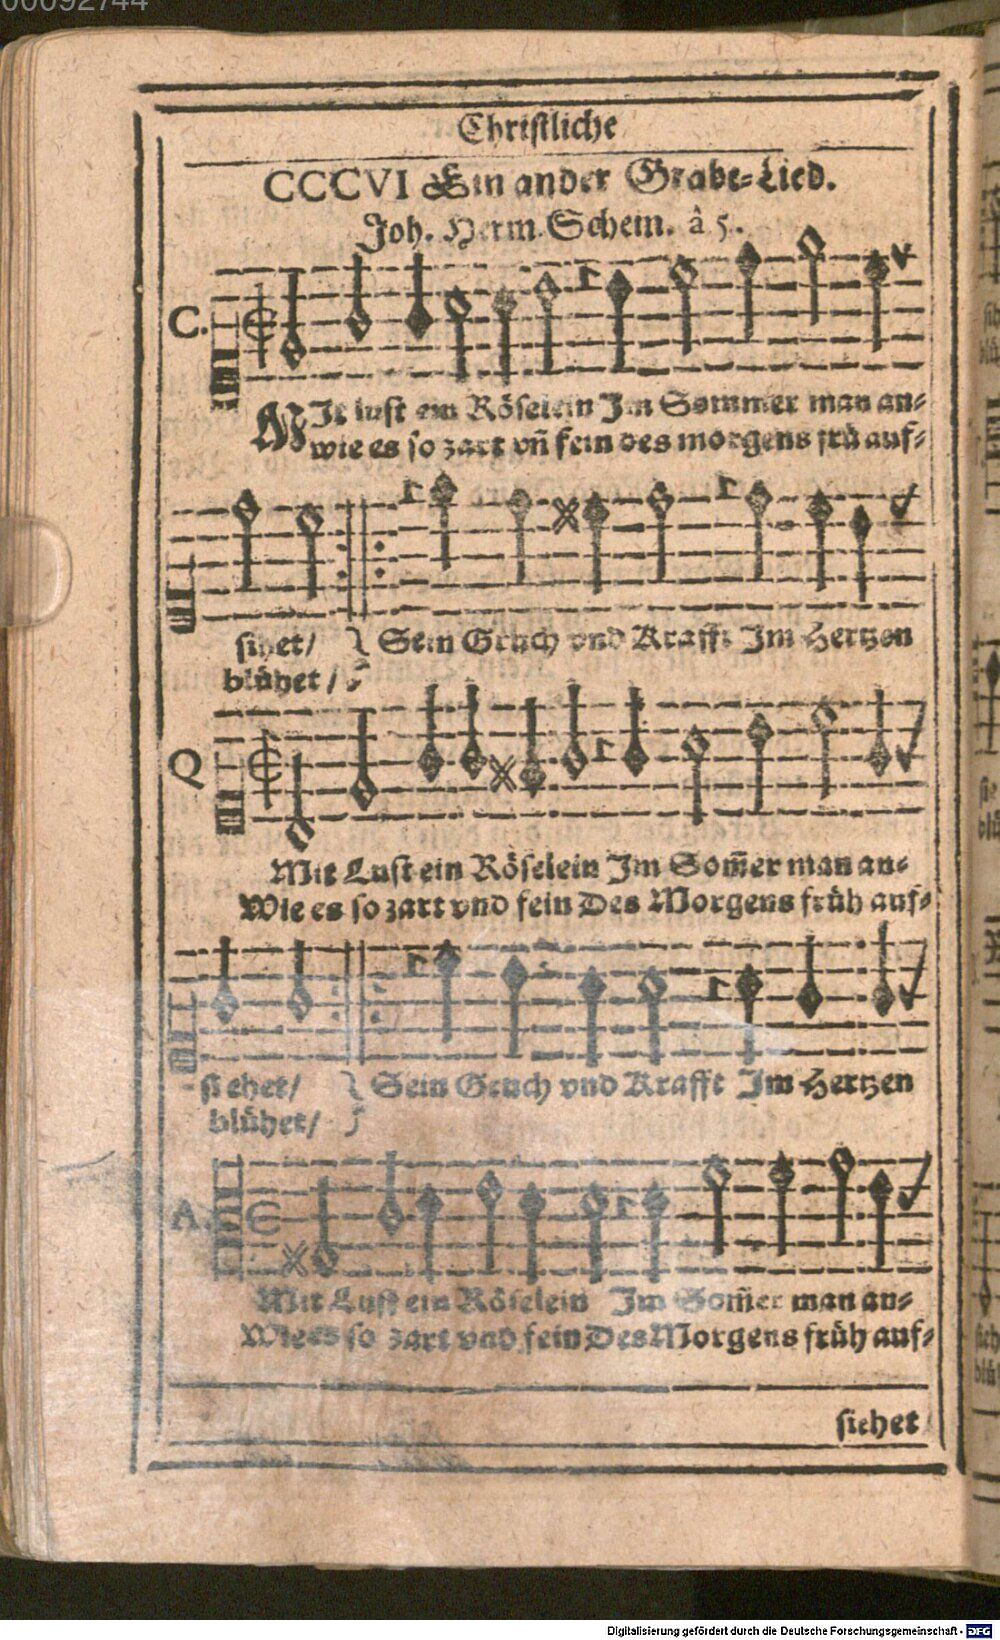 00092744
Christliche
CCCVI Ein ander Grabe-Lied.
Joh. Herm. Schein. â 5.
C.
MIt lust ein Röselein Im Sommer man an-
wie es so zart vñ fein des morgens frü auf-
sihet/ } Sein Gruch vnd Krafft Im Hertzen
blühet/
Q
Mit Lust ein Röselein Im Som̃er man an-
Wie es so zart vnd fein Des Morgens früh auf-
siehet/ } Sein Gruch vnd Krafft Im Hertzen
blühet/
A.
Mit Lust ein Röselein Im Som̃er man an-
Wie es so zart vnd fein Des Morgens früh auf-
siehet
Digitalisierung gefördert durch die Deutsche Forschungsgemeinschaft - DFG